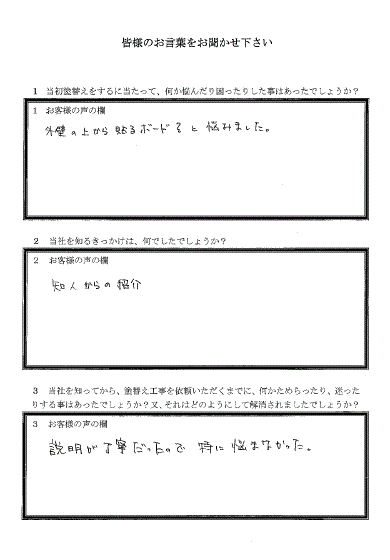 皆様のお言葉をお聞かせ下さい
1 当初塗替えをするに当たって、何か悩んだり困ったりした事はあったでしょうか?
1 お客様の声の欄
外壁の上から貼るボードと悩みました。
2 当社を知るきっかけは、何でしたでしょうか?
2 お客様の声の欄
知人からの紹介
3 当社を知ってから、塗替え工事を依頼いただくまでに、何かためらったり、迷った
りする事はあったでしょうか?又、それはどのようにして解消されましたでしょうか?
3 お客様の声の欄
説明が丁寧だったので特に悩まなかった。